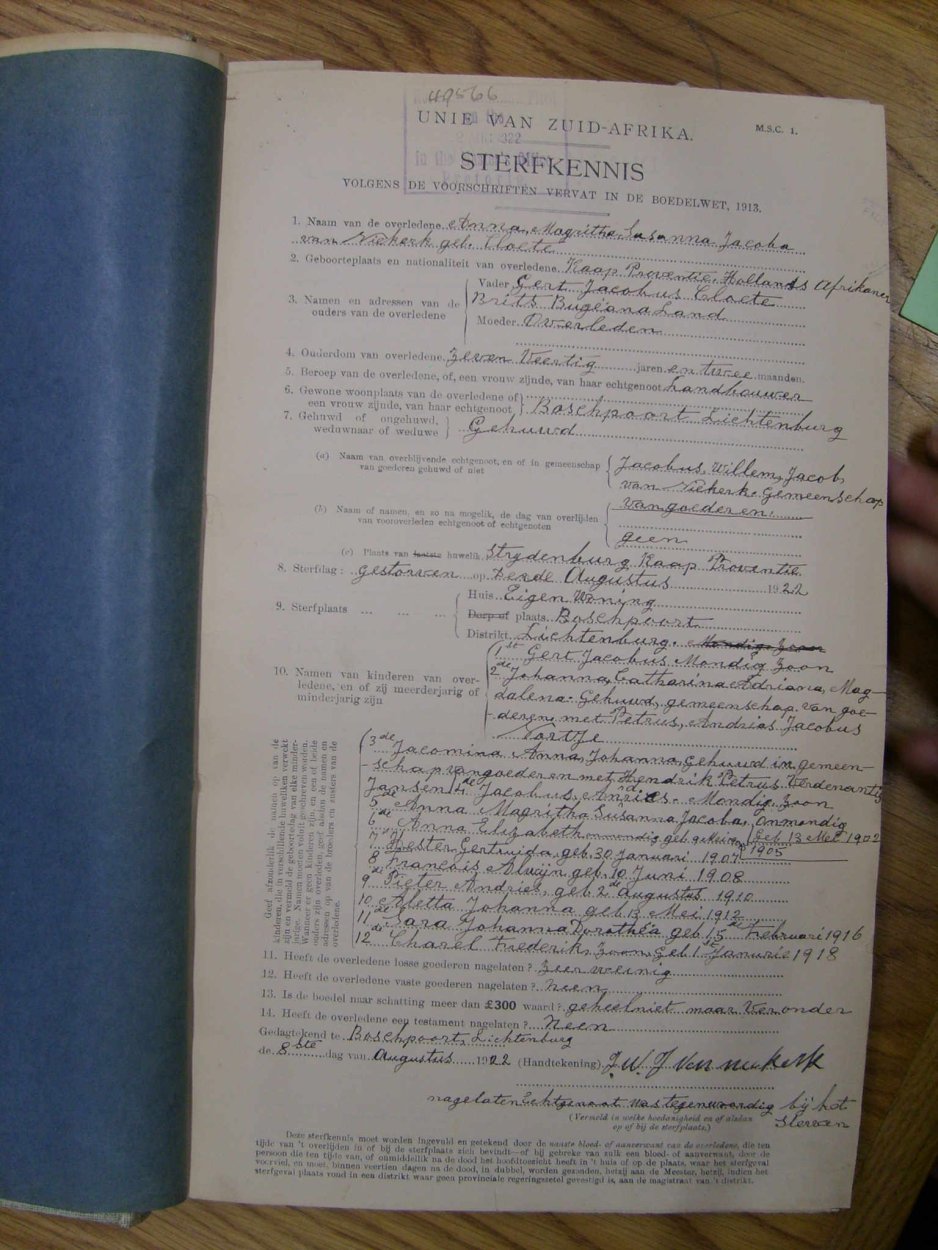 49566
UNIE VAN ZUID-AFRIKA.
M.S.C. 1.
STERFKENNIS
VOLGENS DE VOORSCHRIFTEN VERVAT IN DE BOEDELWET, 1913.
1. Naam van de overledene Anna Magritha Susanna Jacoba
van Niekerk geb. Cloete
2. Geboorteplaats en nationaliteit van overledene. Kaap Proventie. Hollands Afrikaner
3. Namen en adressen van de ouders van de overledene
Vader Gert Jacobus Cloete
Brits Bugeana Land
Moeder Overleden
4. Ouderdom van overledene. Zeven Veertig jaren en twee maanden.
5. Beroep van de overledene, of, een vrouw zijnde, van haar echtgenoot Landbouwer
6. Gewone woonplaats van de overledene of
een vrouw zijnde, van haar echtgenoot Boschpoort Lichtenburg
7. Gehuwd of ongehuwd,
weduwnaar of weduwe Gehuwd
(a) Naam van overblijvende echtgenoot, en of in gemeenschap
van goederen gehuwd of niet
Jacobus, Willem, Jacob,
van Niekerk. Gemeenschap
van goederen.
(b) Naam of namen, en so na mogelik, de dag van overlijden
van vooroverleden echtgenoot of echtgenoten
geen
(c) Plaats van laatste huwelik Strydenburg Kaap Proventie.
8. Sterfdag: gestorven op Derde Augustus 1922
9. Sterfplaats ... ... ...
Huis Eigen Woning
Dorp of plaats. Boschpoort
Distrikt Lichtenburg. Mondig Zoon
10. Namen van kinderen van over-
ledene, en of zij meerderjarig of
minderjarig zijn
1ste Gert Jacobus Mondig Zoon
2de Johanna, Catharina Adriana, Mag-
dalena. Gehuwd, gemeenschap van goe-
deren, met Petrus, Andrias Jacobus
Geef afzonderlik de namen op van de
kinderen, die in verschillende huweliken verwekt
zijn en vermeld de geboortedag van elke minder-
jarige. Namen moeten voluit geschreven worden.
Wanneer er geen kinderen zijn, en een of beide
ouders zijn overleden, geef alsdan de namen en
adressen op van de broeders en zusters van de
overledene.
3de Jacomina Anna, Johanna, Gehuwd in gemeen-
schap van goederen met Hendrik Petrus
Jansen 4de Jacobus, Andries. Mondig Zoon
5de Anna Magritha Susanna Jacoba, Onmondig
Geb 13 Mei 1902
6de Anna Elizabeth geb 1905
7de Hester Gertruida, geb. 30 Januari 1907
8ste Francois Alwijn geb. 10 Juni 1908
9de Pieter Andries, geb 2de Augustus 1910
10de Aletta Johanna geb 13 Mei 1912
11de Sara Johanna Dorothea geb 15de Februari 1916
12de Charel Frederik, Zoon, Geb 1ste Januarie 1918
11. Heeft de overledene losse goederen nagelaten? Zeer weinig
12. Heeft de overledene vaste goederen nagelaten? Neen
13. Is de boedel naar schatting meer dan £300 waard? geheel niet maar ver onder
14. Heeft de overledene een testament nagelaten? Neen
Gedagtekend te Boschpoort, Lichtenburg
de 8ste dag van Augustus 1922 (Handtekening) J. W. J van niekerk
nagelaten Echtgenoot was tegenwoordig bij het
sterven
(Vermeld in welke hoedanigheid en of alsdan
op of bij de sterfplaats.)
Deze sterfkennis moet worden ingevuld en getekend door de naaste bloed- of aanverwant van de overledene, die ten
tijde van 't overlijden in of bij de sterfplaats zich bevindt—of bij gebreke van zulk een bloed- of aanverwant, door de
persoon die ten tijde van, of onmiddellik na de dood het hoofdtoezicht heeft in 't huis of op de plaats, waar het sterfgeval
voorviel, en moet, binnen veertien dagen na de dood, in dubbel, worden gezonden, hetzij aan de Meester, hetzij, indien het
sterfgeval plaats vond in een distrikt waar geen provinciale regeringszetel gevestigd is, aan de magistraat van 't distrikt.